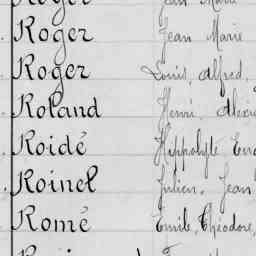 Roger Jean Marie
Roger Louis, Alfred,
Roland Henri, Alexi
Roidé Hippolyte Eug
Roinel Julien, Jean
Romé Emile, Théodore,